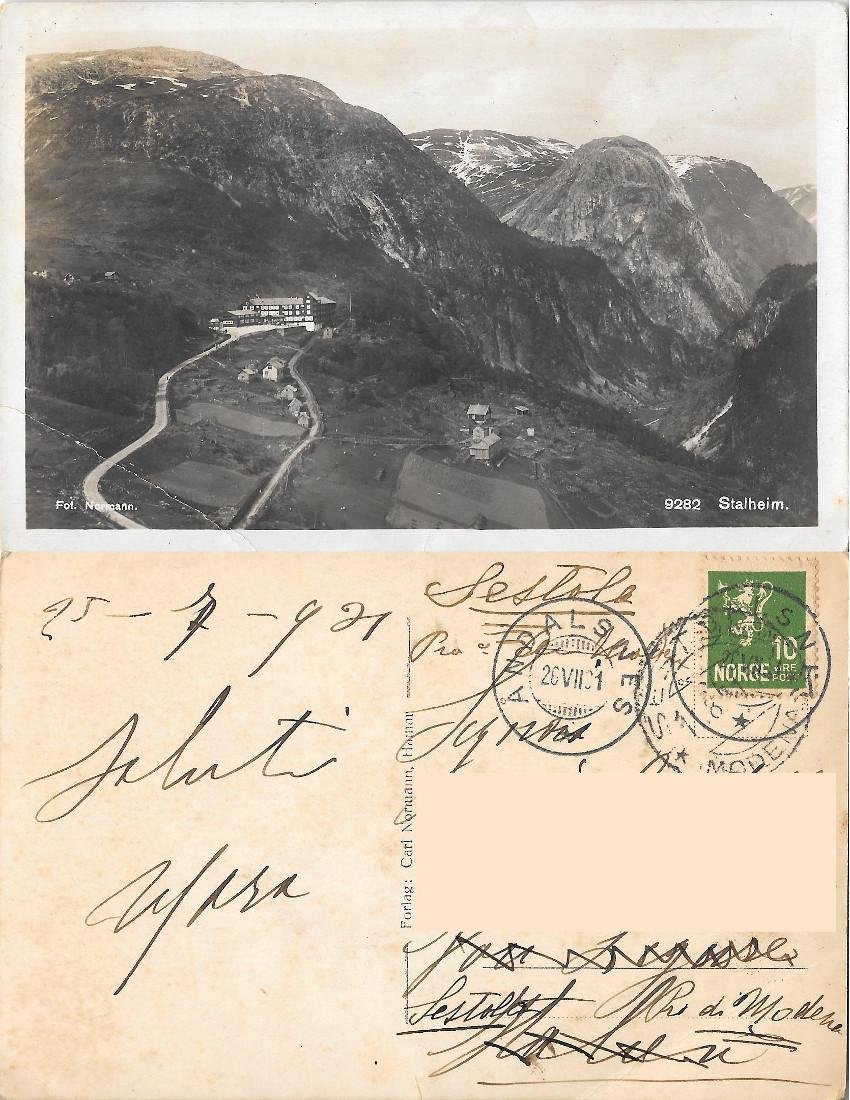 Fot. Normann.
9282 Stalheim.
25-7-931
Saluti
Mara
Forlag: Carl Normann, Hamar
Sestola
Signora
ÅNDALSNES
26 VII 31
NORGE 10 ØRE POST
ÅNDALSNES
SESTOLA
MODENA
Sestola Pre di Modena